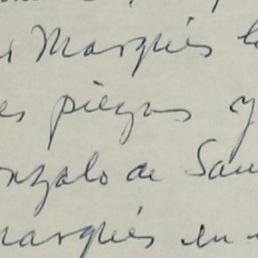 Marqués
piezas y
onzalo de San
marqués en